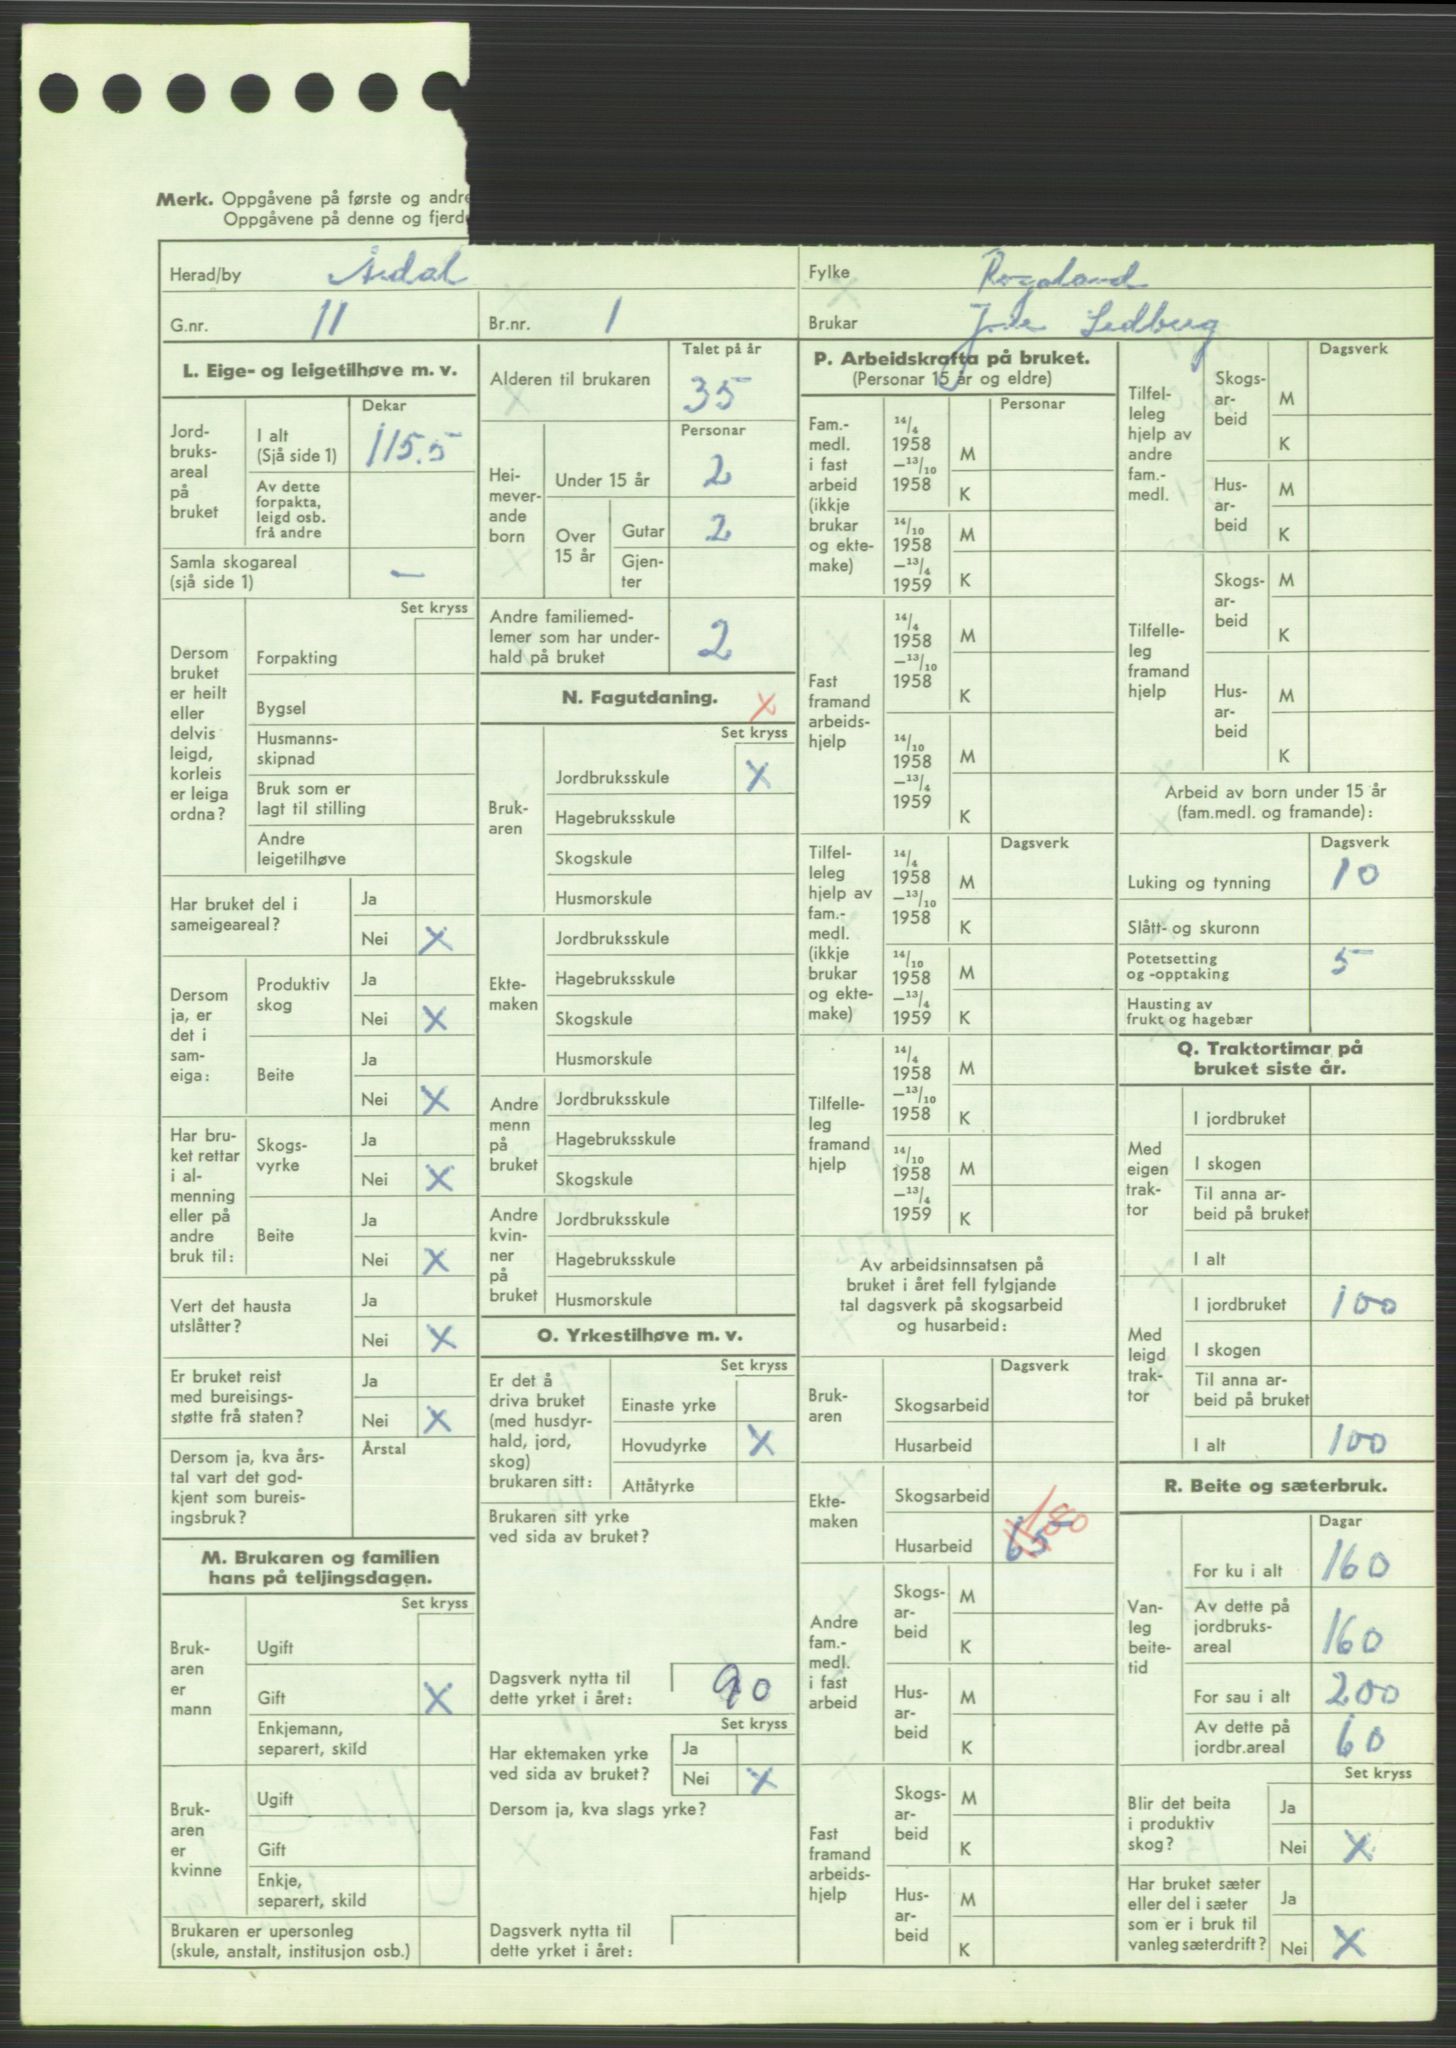 Merk. Oppgåvene på første og andre
Oppgåvene på denne og fjerde
Herad/by Årdal
Fylke Rogaland
G.nr. 11
Br.nr. 1
Brukar Sedberg
L. Eige- og leigetilhøve m. v.
Dekar
Jord-
bruks-
areal
på
bruket
I alt
(Sjå side 1) 115.5
Av dette
forpakta,
leigd osb.
frå andre
Samla skogareal
(sjå side 1) –
Set kryss
Dersom
bruket
er heilt
eller
delvis
leigd,
korleis
er leiga
ordna?
Forpakting
Bygsel
Husmanns-
skipnad
Bruk som er
lagt til stilling
Andre
leigetilhøve
Har bruket del i
sameigeareal?
Ja
Nei X
Dersom
ja, er
det i
sam-
eiga:
Produktiv
skog
Ja
Nei X
Beite
Ja
Nei X
Har bru-
ket rettar
i al-
menning
eller på
andre
bruk til:
Skogs-
vyrke
Ja
Nei X
Beite
Ja
Nei X
Vert det hausta
utslåtter?
Ja
Nei X
Er bruket reist
med bureisings-
støtte frå staten?
Ja
Nei X
Dersom ja, kva års-
tal vart det god-
kjent som bureis-
ingsbruk?
Årstal
M. Brukaren og familien
hans på teljingsdagen.
Set kryss
Bruk-
aren
er
mann
Ugift
Gift X
Enkjemann,
separert, skild
Bruk-
aren
er
kvinne
Ugift
Gift
Enkje,
separert, skild
Brukaren er upersonleg
(skule, anstalt, institusjon osb.)
Talet på år
Alderen til brukaren 35
Personar
Hei-
mever-
ande
born
Under 15 år 2
Over
15 år
Gutar 2
Gjen-
ter
Andre familiemed-
lemer som har under-
hald på bruket 2
N. Fagutdaning. X
Set kryss
Bruk-
aren
Jordbruksskule X
Hagebruksskule
Skogskule
Husmorskule
Ekte-
maken
Jordbruksskule
Hagebruksskule
Skogskule
Husmorskule
Andre
menn
på
bruket
Jordbruksskule
Hagebruksskule
Skogskule
Andre
kvin-
ner
på
bruket
Jordbruksskule
Hagebruksskule
Husmorskule
O. Yrkestilhøve m. v.
Set kryss
Er det å
driva bruket
(med husdyr-
hald, jord,
skog)
brukaren sitt:
Einaste yrke
Hovudyrke X
Attåtyrke
Brukaren sitt yrke
ved sida av bruket?
Dagsverk nytta til
dette yrket i året: 90
Set kryss
Har ektemaken yrke
ved sida av bruket?
Ja
Nei X
Dersom ja, kva slags yrke?
Dagsverk nytta til
dette yrket i året:
P. Arbeidskrafta på bruket.
(Personar 15 år og eldre)
Personar
Fam.-
medl.
i fast
arbeid
(ikkje
brukar
og ekte-
make)
14/4
1958
–13/10
1958
M
K
14/10
1958
–13/4
1959
M
K
Fast
framand
arbeids-
hjelp
14/4
1958
–13/10
1958
M
K
14/10
1958
–13/4
1959
M
K
Dagsverk
Tilfel-
leleg
hjelp av
fam.-
medl.
(ikkje
brukar
og ekte-
make)
14/4
1958
–13/10
1958
M
K
14/10
1958
–13/4
1959
M
K
Tilfelle-
leg
framand
hjelp
14/4
1958
–13/10
1958
M
K
14/10
1958
–13/4
1959
M
K
Av arbeidsinnsatsen på
bruket i året fell fylgjande
tal dagsverk på skogsarbeid
og husarbeid:
Dagsverk
Bruk-
aren
Skogsarbeid
Husarbeid
Ekte-
maken
Skogsarbeid
Husarbeid 65 180
Andre
fam.-
medl.
i fast
arbeid
Skogs-
ar-
beid
M
K
Hus-
ar-
beid
M
K
Fast
framand
arbeids-
hjelp
Skogs-
ar-
beid
M
K
Hus-
ar-
beid
M
K
Dagsverk
Tilfel-
leleg
hjelp av
andre
fam.-
medl.
Skogs-
ar-
beid
M
K
Hus-
ar-
beid
M
K
Tilfelle-
leg
framand
hjelp
Skogs-
ar-
beid
M
K
Hus-
ar-
beid
M
K
Arbeid av born under 15 år
(fam.medl. og framande):
Dagsverk
Luking og tynning 10
Slått- og skuronn
Potetsetting
og -opptaking 5
Hausting av
frukt og hagebær
Q. Traktortimar på
bruket siste år.
Med
eigen
trak-
tor
I jordbruket
I skogen
Til anna ar-
beid på bruket
I alt
Med
leigd
trak-
tor
I jordbruket 100
I skogen
Til anna ar-
beid på bruket
I alt 100
R. Beite og sæterbruk.
Dagar
Van-
leg
beite-
tid
For ku i alt 160
Av dette på
jordbruks-
areal 160
For sau i alt 200
Av dette på
jordbr.areal 60
Set kryss
Blir det beita
i produktiv
skog?
Ja
Nei X
Har bruket sæter
eller del i sæter
som er i bruk til
vanleg sæterdrift?
Ja
Nei X